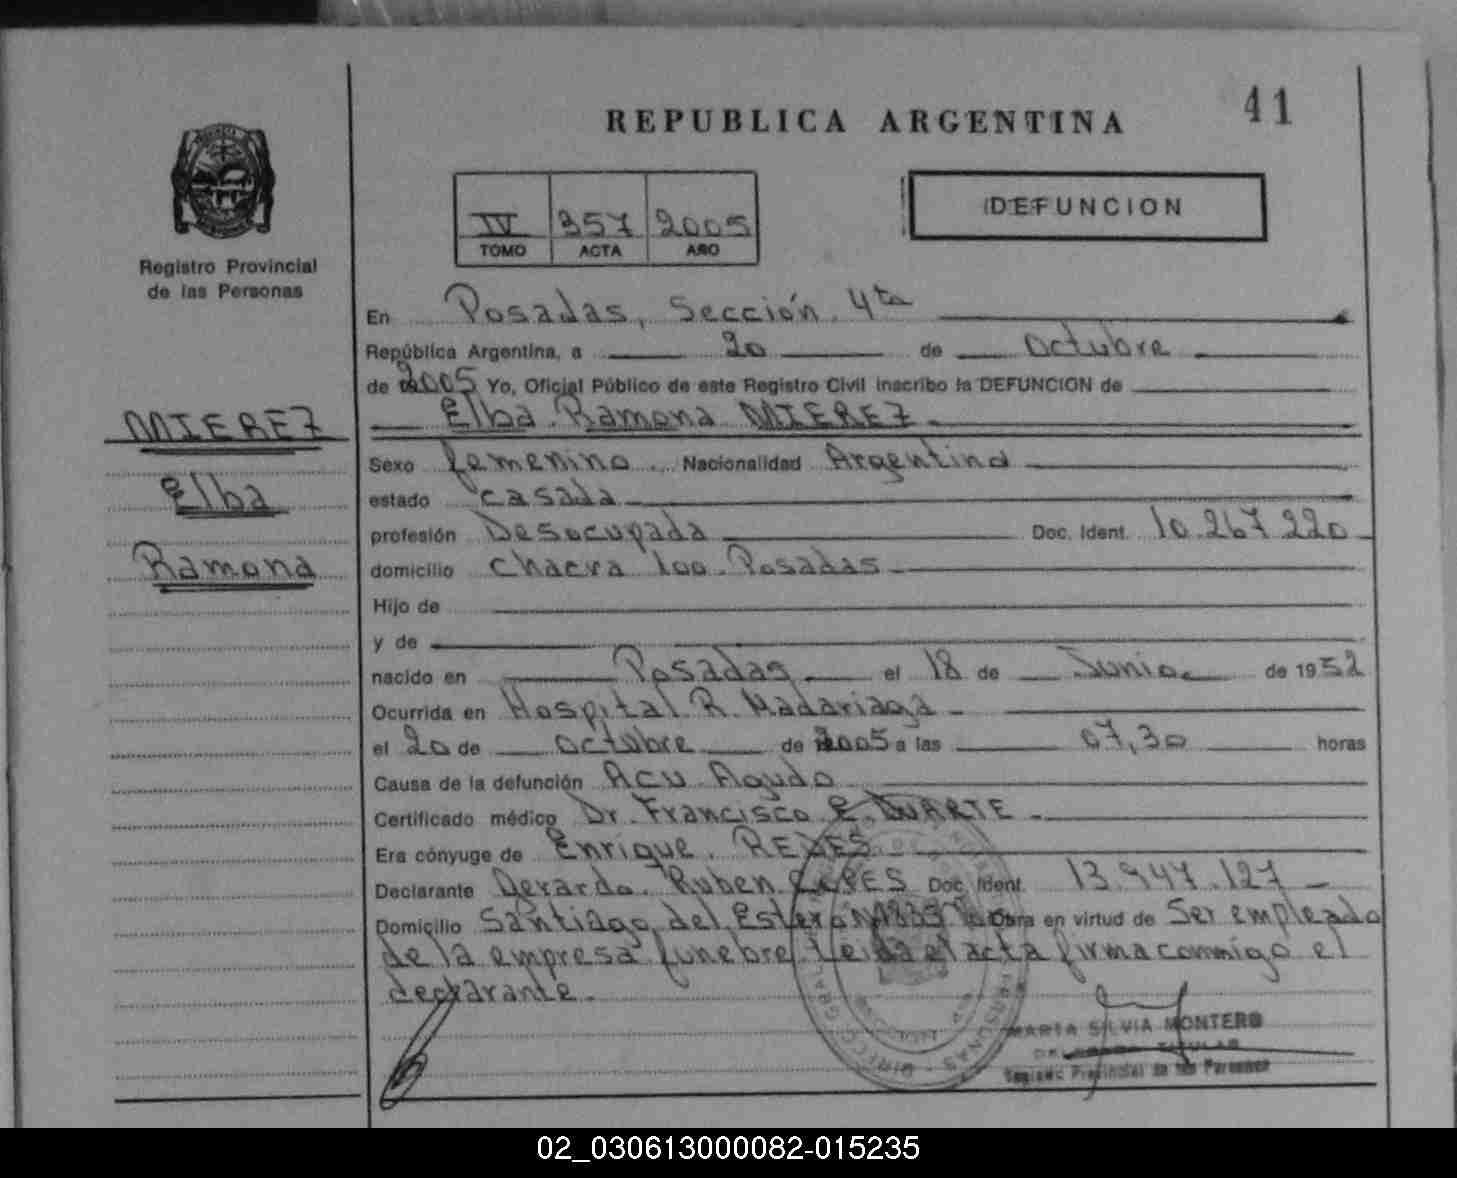 41
REPUBLICA ARGENTINA
IV 357 2005
TOMO ACTA AÑO
DEFUNCION
Registro Provincial
de las Personas
MIEREZ
Elba
Ramona
En Posadas, Sección 4ta
República Argentina, a 20 de Octubre
de 2005 Yo, Oficial Público de este Registro Civil inscribo la DEFUNCION de
Elba Ramona MIEREZ
Sexo femenino Nacionalidad Argentina
estado casada
profesión Desocupada Doc. Ident. 10.267.220
domicilio chacra 100. Posadas
Hijo de
y de
nacido en Posadas el 18 de Junio de 1952
Ocurrida en Hospital R. Madariaga
el 20 de octubre de 2005 a las 07,30 horas
Causa de la defunción Acv Agudo
Certificado médico Dr. Francisco E. DUARTE
Era cónyuge de Enrique
Declarante Gerardo Ruben Doc. Ident. 13.947.127
Domicilio Santiago del Estero Obra en virtud de Ser empleado
de la empresa funebre. Leida el acta firma conmigo el
declarante.
MARTA SILVIA MONTERO
Registro Provincial de las Personas
02_030613000082-015235